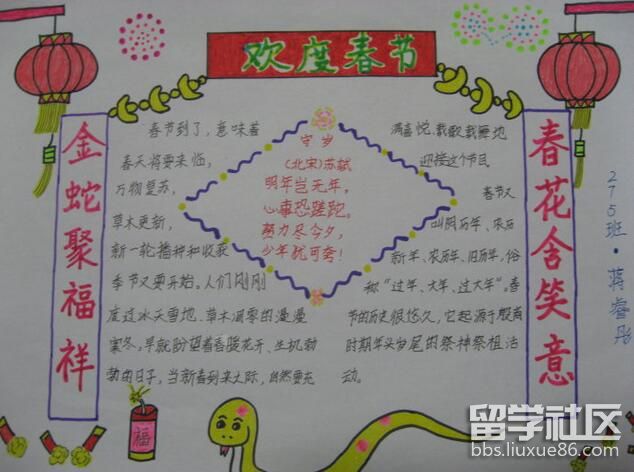 欢度春节
金蛇聚福祥
春节到了，意味着
春天将要来临，
万物复苏，
草木更新，
新一轮播种和收获
季节又要开始。人们刚刚
度过冰天雪地、草木凋零的漫漫
寒冬，早就盼望着春暖花开、生机勃
勃的日子，当新春到来之际，自然要充
守岁
(北宋)苏轼
明年岂无年，
心事恐蹉跎。
努力尽今夕，
少年犹可夸！
满喜悦、载歌载舞地
迎接这个节日。
春节又
叫阴历年、农历
新年、农历年、旧历年，俗
称“过年、大年、过大年”。春
节的历史很悠久，它起源于殷商
时期年头岁尾的祭神祭祖活
动。
春花含笑意
275班·蒋睿彤
福
留学社区
bbs.liuxue86.com